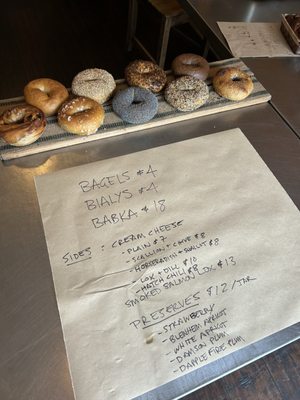 BAGELS $4
BIALYS $4
BABKA $18
SIDES: CREAM CHEESE
- PLAIN $7
- SCALLION + CHIVE $8
- HORSERADISH + SHALLOT $8
- LOX + DILL $10
- HATCH CHILI $8
SMOKED SALMON LOX $13
PRESERVES $12/JAR
- STRAWBERRY
- BLENHEIM APRICOT
- WHITE APRICOT
- DAMSON PLUM
- DAPPLE FIRE PLUM